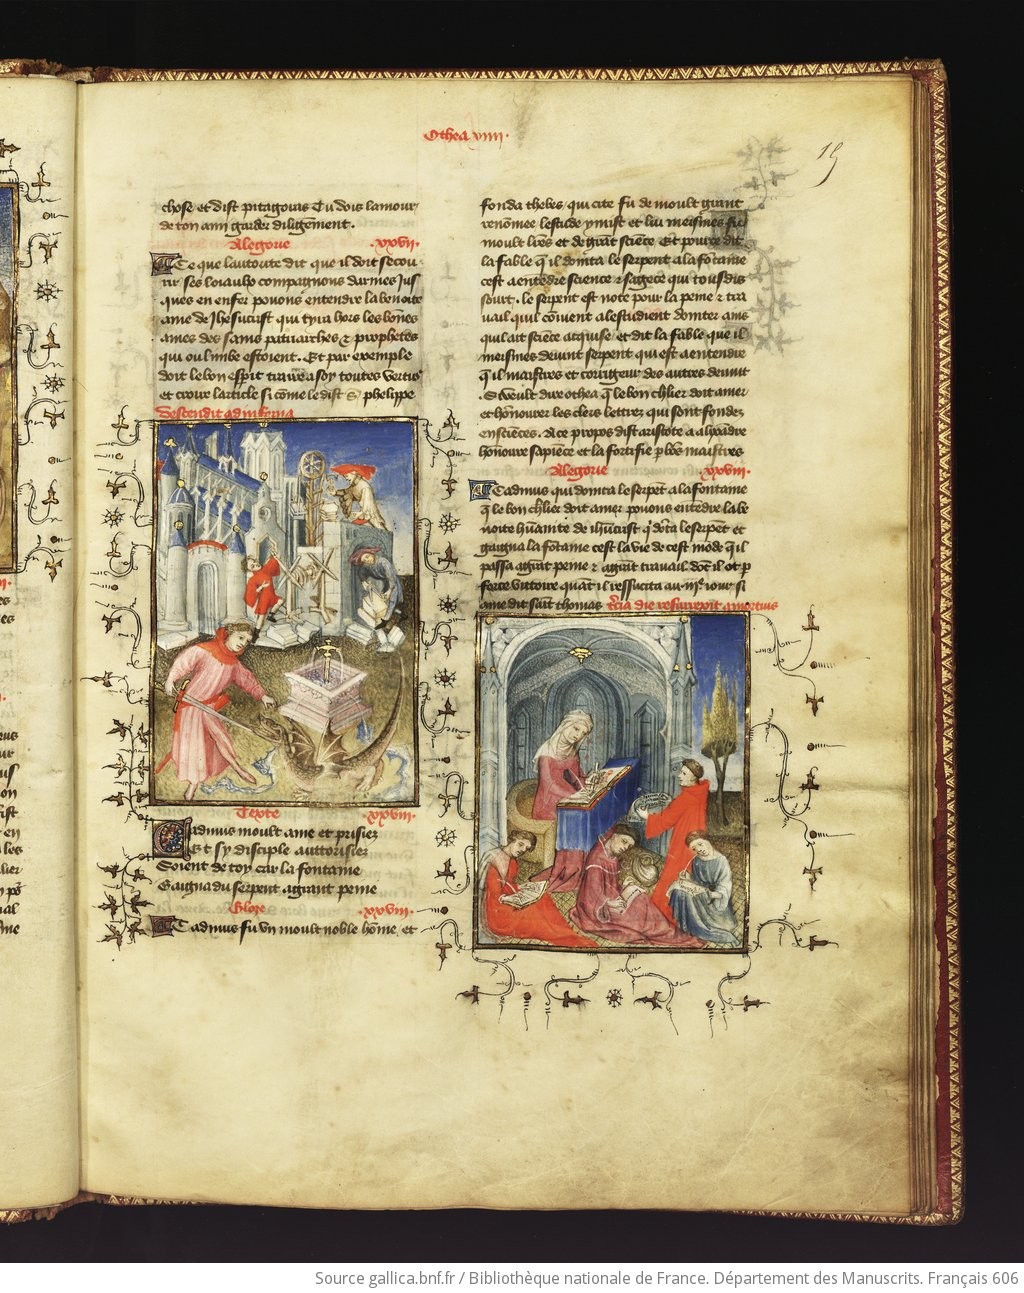 Othea viiii.
15
chose et dist pitagoras Tu dois lamour
de ton amy garder diligẽment.
Alegorie .xxvii.
Ce que lauttorite dit que il doit secou
rir ses loiaulx compaignons darmes Jus
ques en enfer pouons entendre la benoite
ame de Jhesucrist qui tyra hors les bõnes
ames des sains patriarches & prophetes
qui ou limbe estoient. Et par exemple
doit le bon esp̃it traire a soy toutes vertus
et croire larticle si com̃e le dist s phelippe
descendit ad inferna
Texte .xxviii.
Cadmus moult aime et prisier
Et sy disciple auttorisier
Soient de toy car la fontaine
Gaigna du serpent a grant peine
Glose .xxviii.
Cadmus fu vn moult noble hõme et
fonda thebes qui cite fu de moult grant
renõmee lestude y mist et lui meismes fu
moult lr̃es et de grãt sciẽce Et pource dit
la fable q̃ il donta le serpent a la fõtaine
cest a entẽdre science & sagece qui tousdis
sourt. le serpent est note pour la peine & tra
uail quil cõuient a lestudient donter ains
quil ait sciẽce acquise et dit la fable que il
meismes deuint serpent qui est a entendre
q̃ il maistres et corrigeur des autres deuint
Si veult dire othea q̃ le bon ch̃lier doit amer
et hõnourer les clers lettrez qui sont fondez
en sciẽces. A ce propos dist aristote a alixãdre
hõnoure sapiẽce et la fortifie p̃ bõs maistres
Alegorie .xxviii.
Cadmus qui donta le serpẽt a la fontaine
q̃ le bon ch̃lier doit amer pouons entendre la be
noite hũanite de ih̃ucrist q̃ dõta le serpẽt et
gaigna la fõtaine cest la vie de cest mõde q̃ il
passa a grãt peine & a grãt trauail dõt il ot p̃
forte vittoire quãt il ressucita au .iii. iour si
cõme dit saint thomas tr̃cia die resurexit a mortuis
Source gallica.bnf.fr / Bibliothèque nationale de France. Département des Manuscrits. Français 606